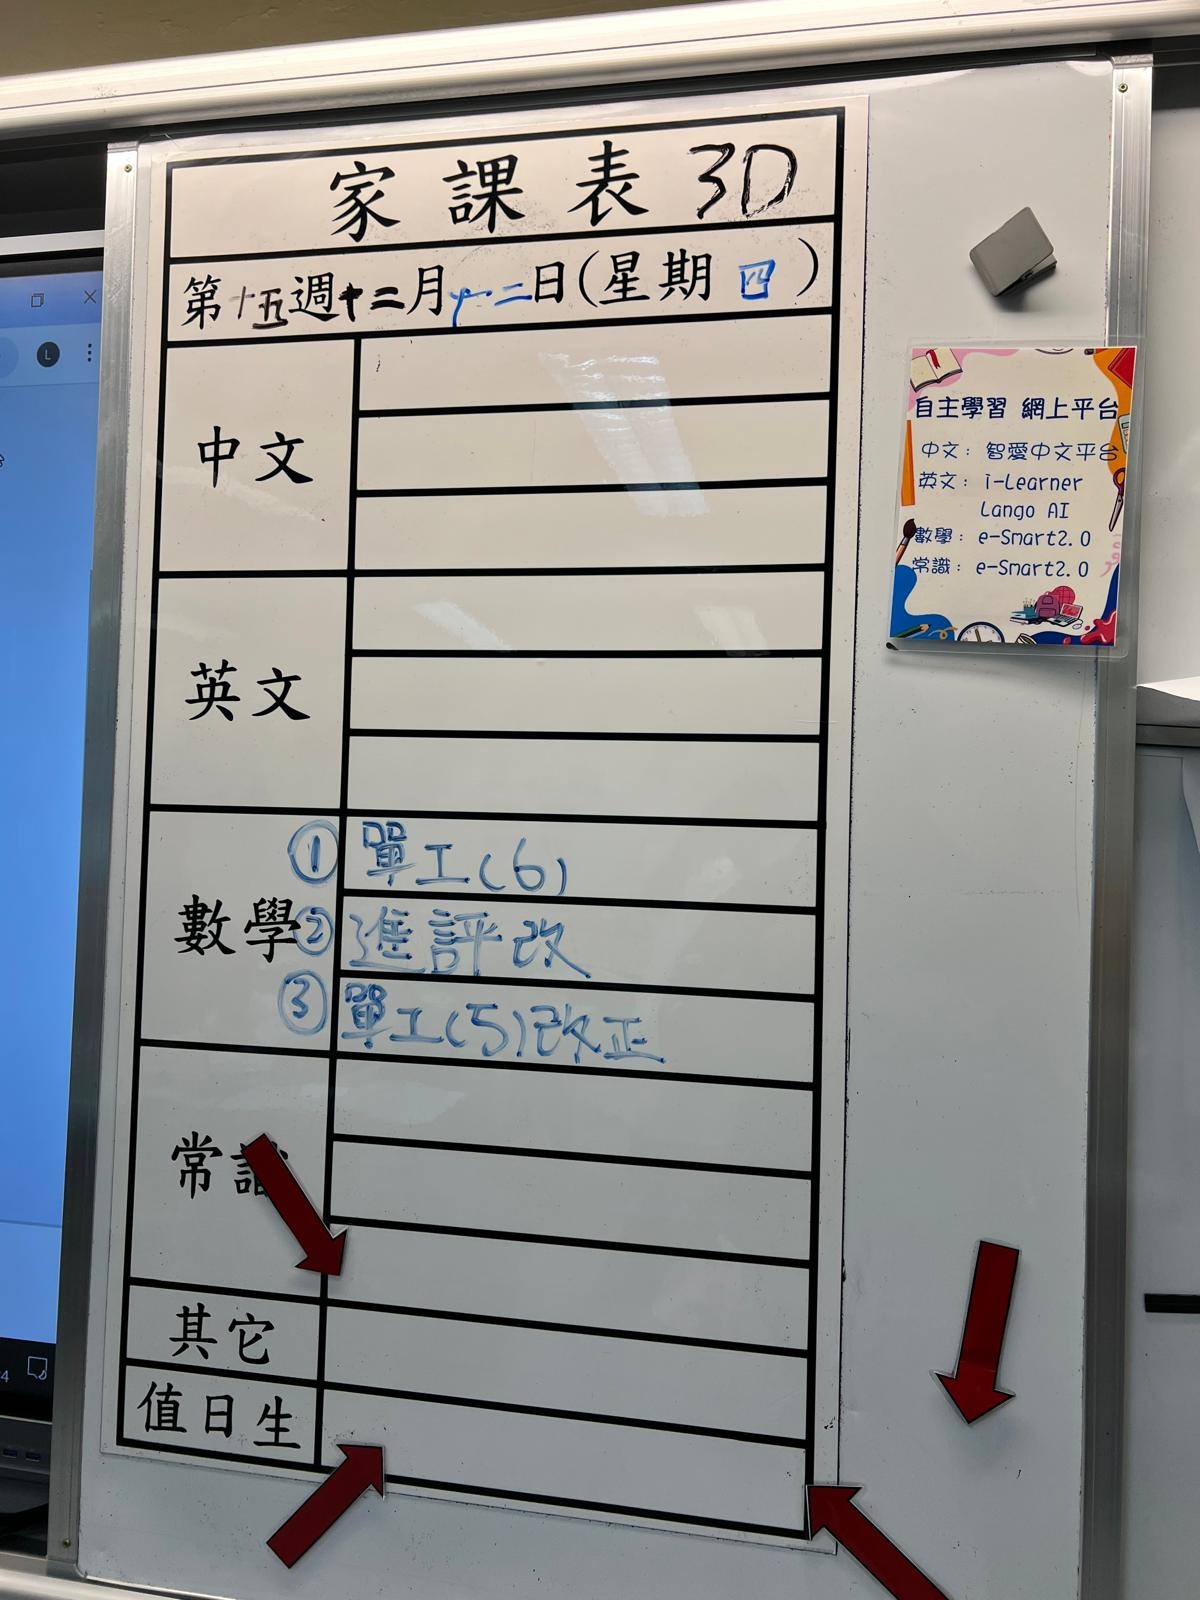 家課表 3D
第十五週十二月十二日(星期四)
中文
英文
數學
① 單工(6)
② 進評改
③ 單工(5)改正
常識
其它
值日生
自主學習 網上平台
中文：智愛中文平台
英文：i-Learner
Lango AI
數學：e-Smart2.0
常識：e-Smart2.0
L